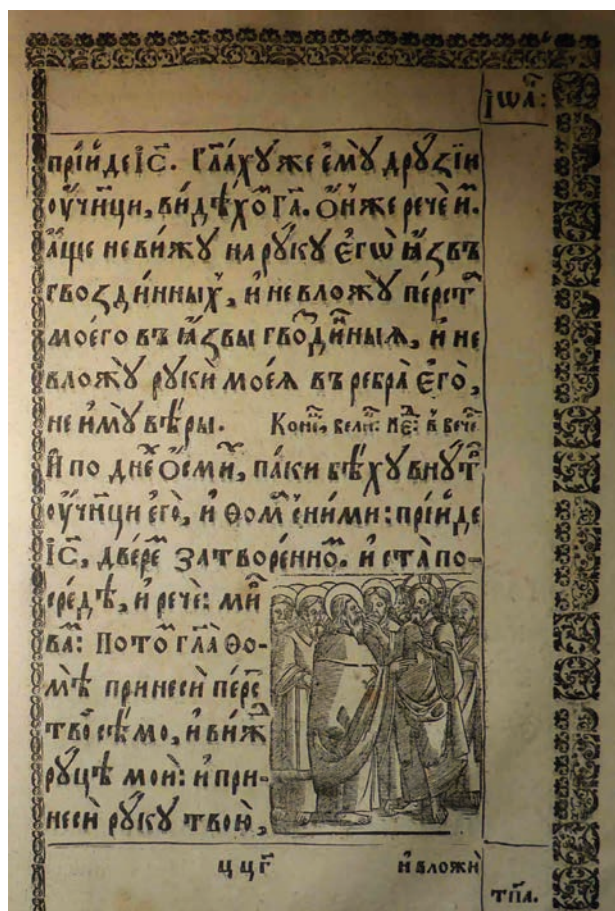 Іѡа҃:
прїи́де І҃С. Гл҃ахꙋже є҆мꙋ̀ дрꙋзїи
оу҆чн҃ци, ви́дѣхоⷨ Га҃. Ѻ҆́нже рече̏ и҆ⷨ.
а҆́ще не ви́жꙋ на рꙋ́кꙋ Є҆гѡ̀ ꙗ҆́звъ
гвозди́нныⷯ, и҆ не вложꙋ̀ пе́рстⷶ
моегѡ̀ въ ꙗ҆́звы гвоⷥди́ныѧ, и҆ не
вложꙋ̀ рꙋки̏ моеѧ̀ въ ребра̏ Є҆го̀,
не и҆мꙋ̀ вѣ́ры. Конеⷰ҇, велиⷦ҇: нєⷣ: в вечеⷬ
И҆ по дн҃е Ѻ҆сми́, па́ки бѣ́хꙋ внꙋ́тⷬ
оу҆чн҃ци є҆го̀, и҆ Ѳома̀ с ни́ми: прїи́де
І҃С, две́реⷨ затворе́нноⷨ. и҆ ста̀ по-
средѣ̀, и҆ рече̏: миⷬ
ваⷨ: Потоⷨ гл҃а Ѳо-
мѣ̀ принеси̏ пе́рсⷮ
твоⷨ сѣ́мо, и҆ ви́жⷣ
рꙋ́цѣ мои̏: и҆ при-
неси̏ рꙋ́кꙋ твою̀,
ц ц҃г и҆ вложи̏
тп҃а.